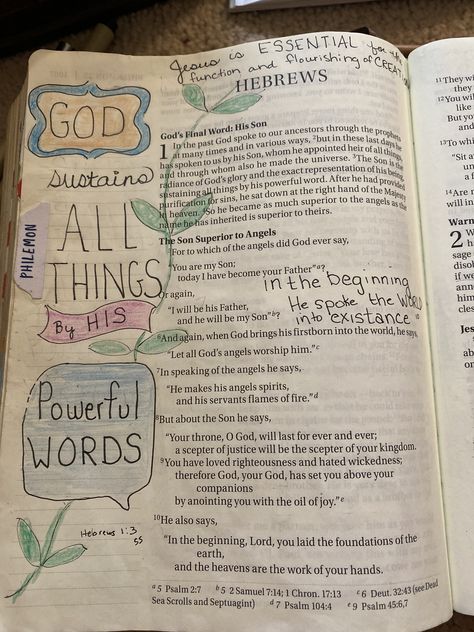 Jesus is ESSENTIAL for the
function and flourishing of CREATION
HEBREWS
GOD
sustains
ALL
THINGS
By HIS
Powerful
WORDS
Hebrews 1:3
PHILEMON
God's Final Word: His Son
1 In the past God spoke to our ancestors through the prophets
at many times and in various ways, 2but in these last days he
has spoken to us by his Son, whom he appointed heir of all things,
and through whom also he made the universe. 3The Son is the
radiance of God's glory and the exact representation of his being,
sustaining all things by his powerful word. After he had provided
purification for sins, he sat down at the right hand of the Majesty
in heaven. So he became as much superior to the angels as the
name he has inherited is superior to theirs.
The Son Superior to Angels
For to which of the angels did God ever say,
"You are my Son;
today I have become your Father"a?
Or again,
"I will be his Father,
and he will be my Son"b?
in the beginning
He spoke the World
into existance
6And again, when God brings his firstborn into the world, he says,
"Let all God's angels worship him."c
7In speaking of the angels he says,
"He makes his angels spirits,
and his servants flames of fire."d
8But about the Son he says,
"Your throne, O God, will last for ever and ever;
a scepter of justice will be the scepter of your kingdom.
9You have loved righteousness and hated wickedness;
therefore God, your God, has set you above your
companions
by anointing you with the oil of joy."e
10He also says,
"In the beginning, Lord, you laid the foundations of the
earth,
and the heavens are the work of your hands.
a5 Psalm 2:7 b5 2 Samuel 7:14; 1 Chron. 17:13 c6 Deut. 32:43 (see Dead
Sea Scrolls and Septuagint) d7 Psalm 104:4 e9 Psalm 45:6,7
11They
12You wi
like
But yo
an
13To whi
"Sit a
un
a f
14Are
will in
Warn
2 W
sage
disob
if we
Jes